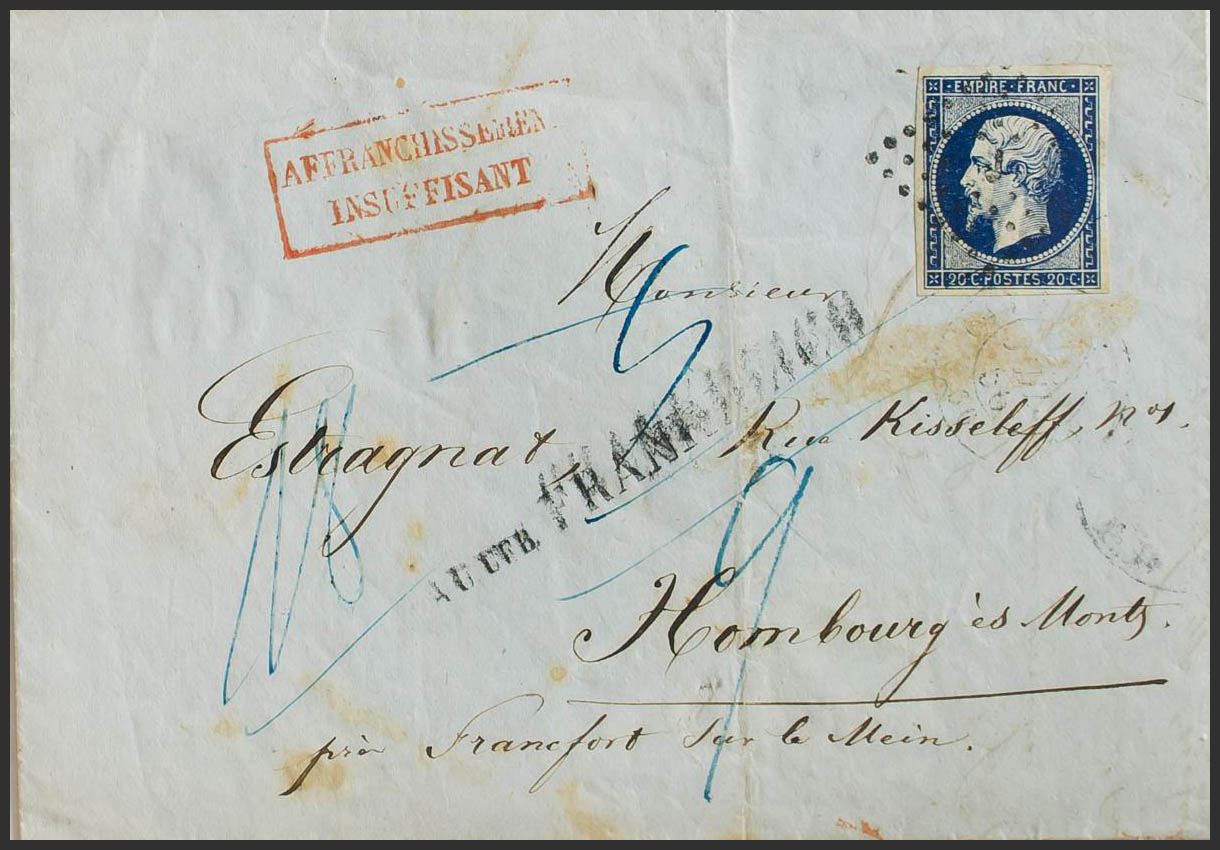 EMPIRE · FRANC ·
20 · C · POSTES 20 · C ·
AFFRANCHISSEMEN
INSUFFISANT
Monsieur
Estragnat, Rue Kisseleff, nº 1.
AUS FRANKREICH
Hombourg ès Monts.
près Francfort sur le Mein.
9